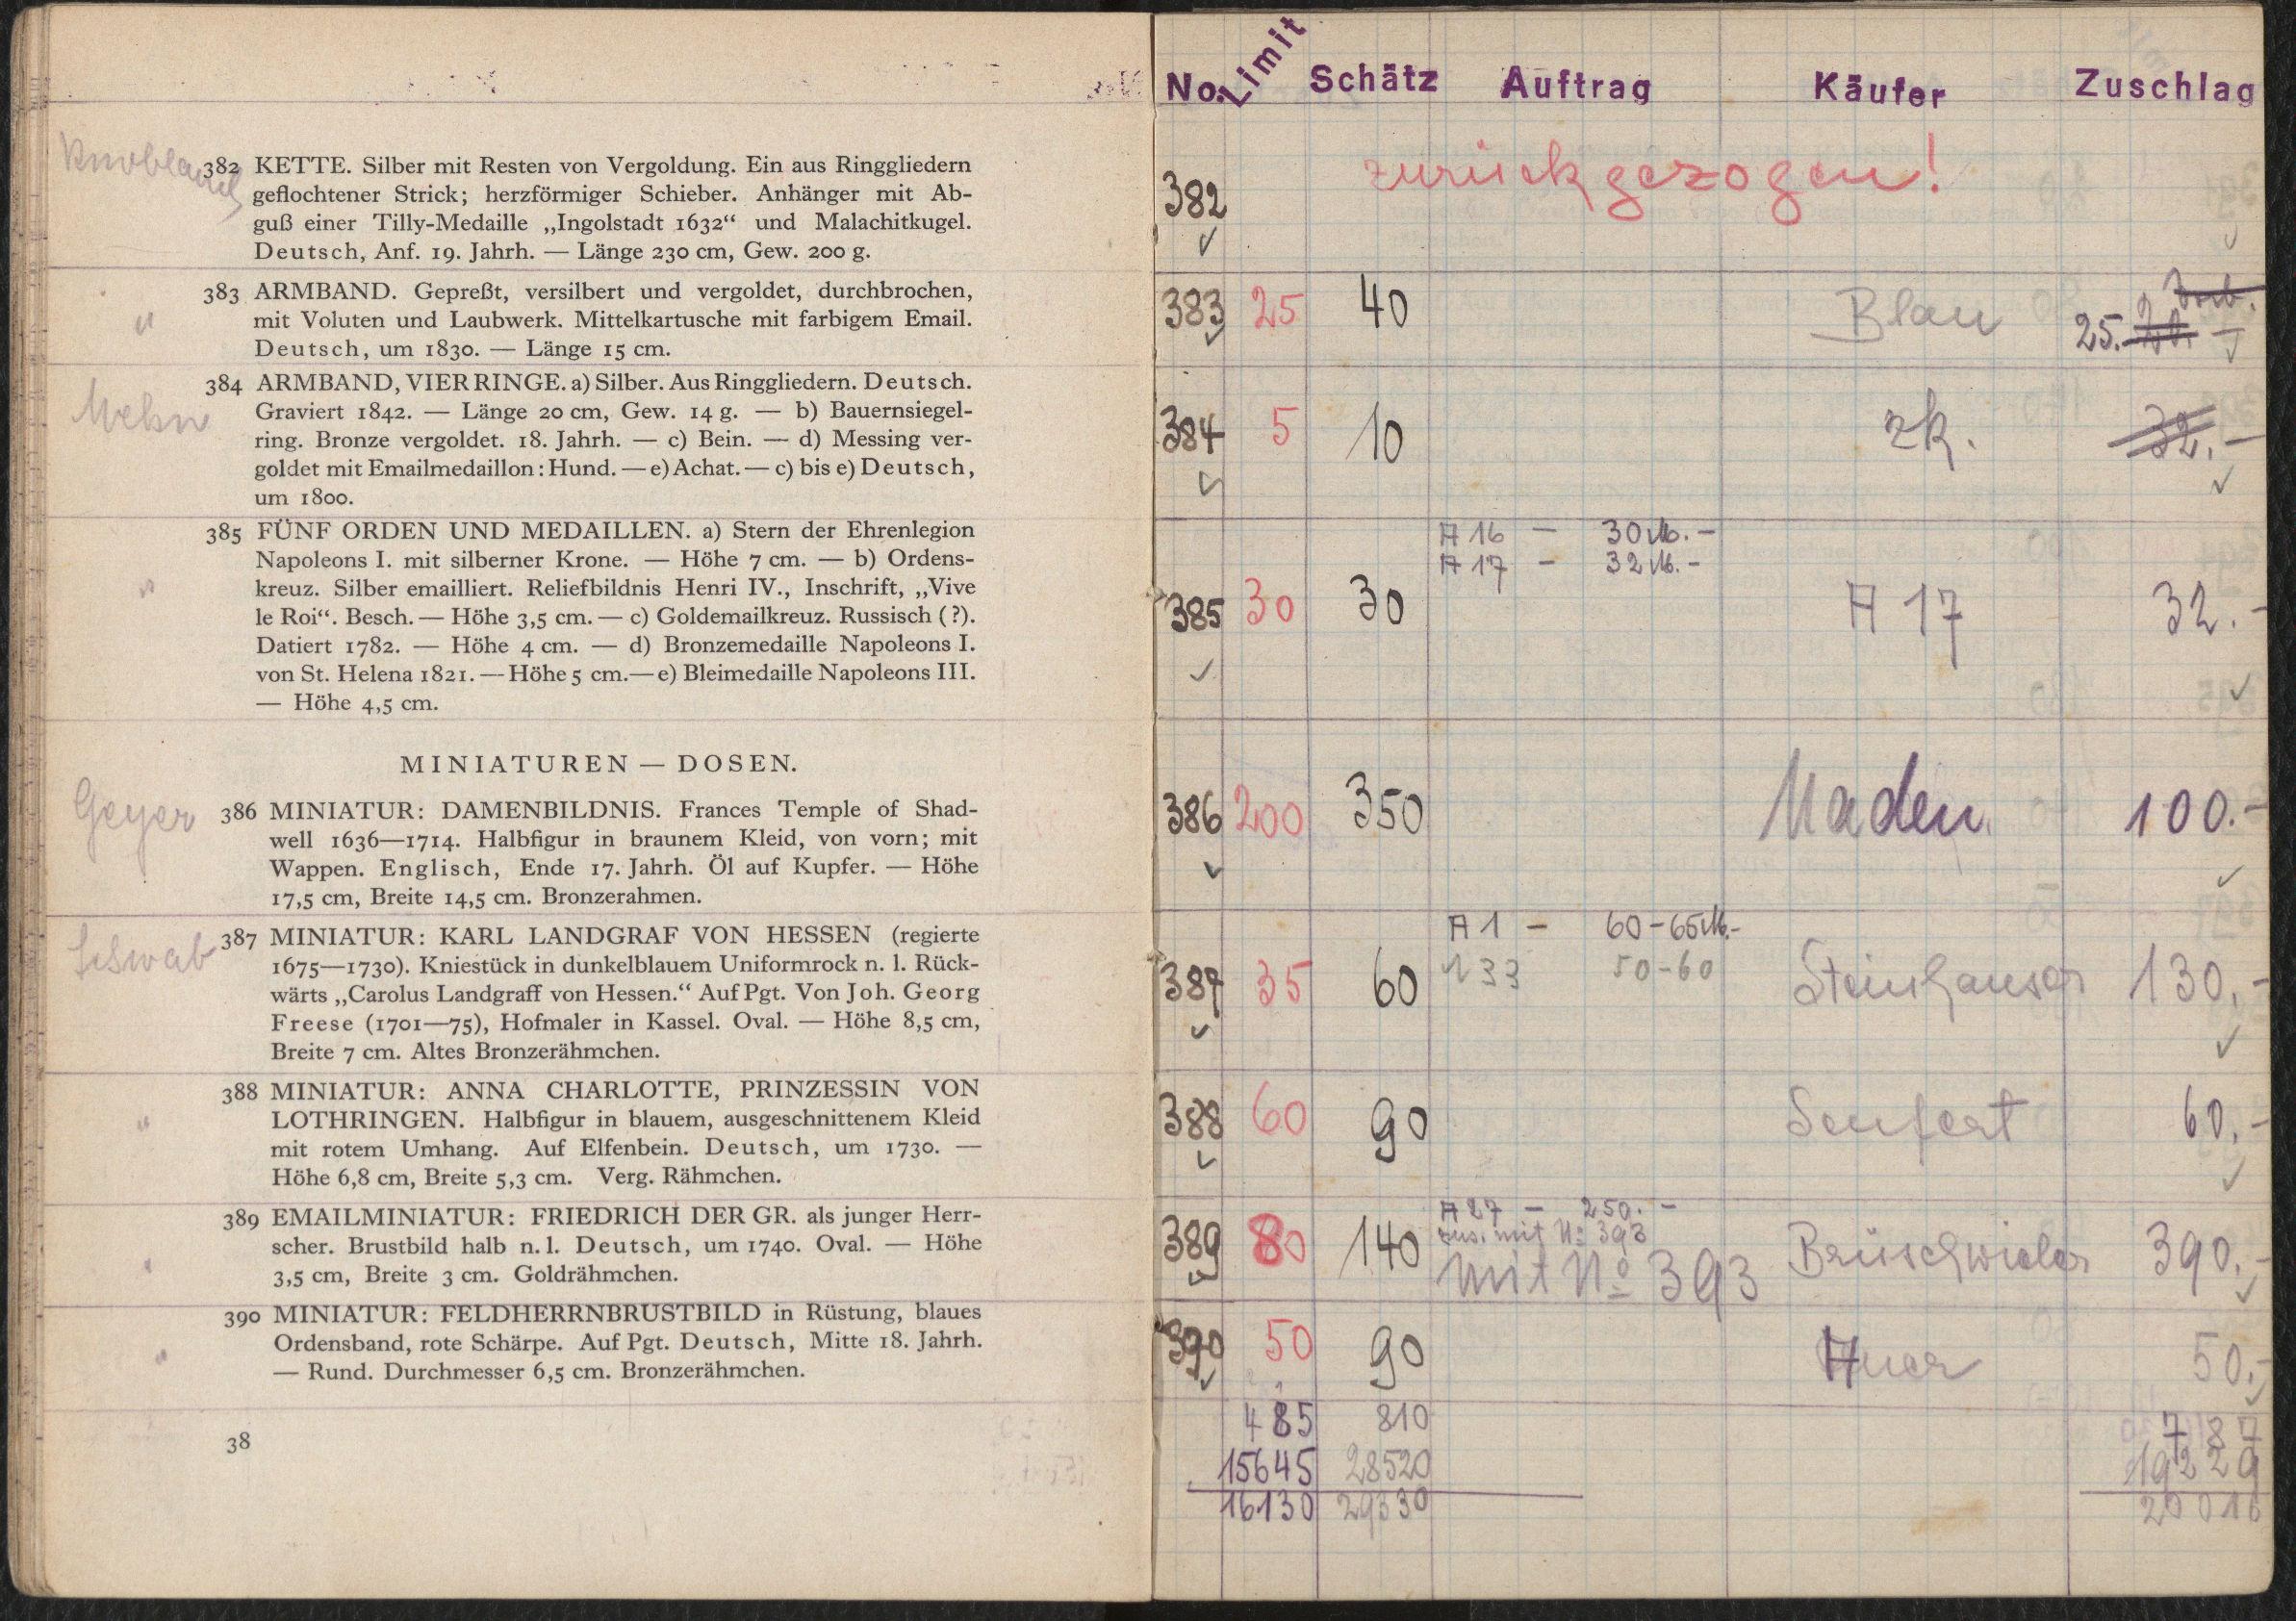 382 KETTE. Silber mit Resten von Vergoldung. Ein aus Ringgliedern
geflochtener Strick; herzförmiger Schieber. Anhänger mit Ab-
guß einer Tilly-Medaille „Ingolstadt 1632“ und Malachitkugel.
Deutsch, Anf. 19. Jahrh. — Länge 230 cm, Gew. 200 g.
383 ARMBAND. Gepreßt, versilbert und vergoldet, durchbrochen,
"
mit Voluten und Laubwerk. Mittelkartusche mit farbigem Email.
Deutsch, um 1830. — Länge 15 cm.
384 ARMBAND, VIER RINGE. a) Silber. Aus Ringgliedern. Deutsch.
Graviert 1842. — Länge 20 cm, Gew. 14 g. — b) Bauernsiegel-
ring. Bronze vergoldet. 18. Jahrh. — c) Bein. — d) Messing ver-
goldet mit Emailmedaillon: Hund. — e) Achat. — c) bis e) Deutsch,
um 1800.
385 FÜNF ORDEN UND MEDAILLEN. a) Stern der Ehrenlegion
Napoleons I. mit silberner Krone. — Höhe 7 cm. — b) Ordens-
" kreuz. Silber emailliert. Reliefbildnis Henri IV., Inschrift, „Vive
le Roi“. Besch. — Höhe 3,5 cm. — c) Goldemailkreuz. Russisch (?).
Datiert 1782. — Höhe 4 cm. — d) Bronzemedaille Napoleons I.
von St. Helena 1821. — Höhe 5 cm. — e) Bleimedaille Napoleons III.
— Höhe 4,5 cm.
MINIATUREN — DOSEN.
Geyer 386 MINIATUR: DAMENBILDNIS. Frances Temple of Shad-
well 1636—1714. Halbfigur in braunem Kleid, von vorn; mit
Wappen. Englisch, Ende 17. Jahrh. Öl auf Kupfer. — Höhe
17,5 cm, Breite 14,5 cm. Bronzerahmen.
Schwab 387 MINIATUR: KARL LANDGRAF VON HESSEN (regierte
1675—1730). Kniestück in dunkelblauem Uniformrock n. l. Rück-
wärts „Carolus Landgraff von Hessen.“ Auf Pgt. Von Joh. Georg
Freese (1701—75), Hofmaler in Kassel. Oval. — Höhe 8,5 cm,
Breite 7 cm. Altes Bronzerähmchen.
388 MINIATUR: ANNA CHARLOTTE, PRINZESSIN VON
" LOTHRINGEN. Halbfigur in blauem, ausgeschnittenem Kleid
mit rotem Umhang. Auf Elfenbein. Deutsch, um 1730. —
Höhe 6,8 cm, Breite 5,3 cm. Verg. Rähmchen.
389 EMAILMINIATUR: FRIEDRICH DER GR. als junger Herr-
scher. Brustbild halb n. l. Deutsch, um 1740. Oval. — Höhe
" 3,5 cm, Breite 3 cm. Goldrähmchen.
390 MINIATUR: FELDHERRNBRUSTBILD in Rüstung, blaues
" Ordensband, rote Schärpe. Auf Pgt. Deutsch, Mitte 18. Jahrh.
— Rund. Durchmesser 6,5 cm. Bronzerähmchen.
38
No. Limit Schätz Auftrag Käufer Zuschlag
382 zurückgezogen!
383 25 40 Blau 25. 20. –
384 5 10 zk. 32.–
A 16 – 30 M.–
A 17 – 32 M.–
385 30 30 A 17 32.–
386 200 350 Maden. 100.–
A 1 – 60–65 M.–
387 35 60 133 50–60 Steinhauser 130.–
388 60 90 Seufert 60.–
A 27 – 250.–
zus. mit No 393
389 80 140 mit No 393 Brüschwieler 390.–
390 50 90 50.–
485 810 787
15645 28520 19229
16130 29330 20016